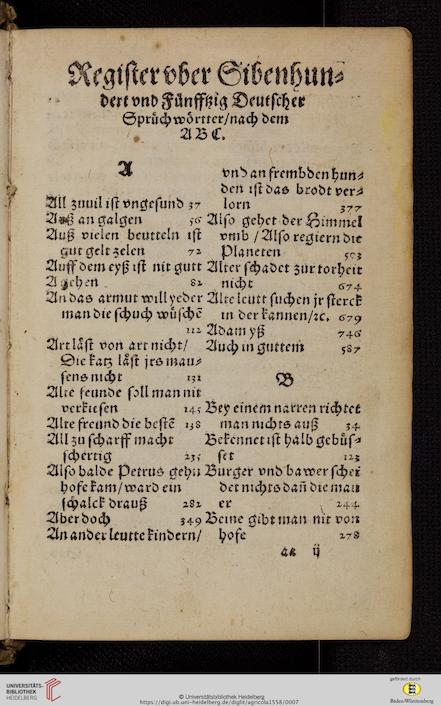 Register vber Sibenhun⸗
dert vnd Fünfftzig Deutscher
Sprüchwörter/nach dem
ABC.
A
All zuuil ist vngesund 37
Auß an galgen 56
Auß vielen beutteln ist
gut gelt zelen 72
Auff dem eyß ist nit gutt
gehen 82
An das armut will yeder
man die schuch wüschē
112
Art läst von art nicht/
Die katz läst jrs mau⸗
sens nicht 131
Alte feunde soll man nit
verkiesen 145
Alte freund die bestē 158
All zu scharff macht
schertig 235
Also balde Petrus gehn
hofe kam/ward ein
schalck drauß 282
Aber doch 349
An ander leutte kindern/
vnd an frembden hun⸗
den ist das brodt ver⸗
lorn 377
Also gehet der Himmel
vmb / Also regiern die
Planeten 503
Alter schadet zur torheit
nicht 674
Alte leutt suchen jr sterck
in der kannen/ꝛc. 679
Adam yß 746
Auch in guttem 587
B
Bey einem narren richtet
man nichts auß 34
Bekennet ist halb gebüs⸗
set 123
Burger vnd bawer schei
det nichts dañ die mau
er 244
Beine gibt man nit von
hofe 278
aa ij
UNIVERSITÄTS-
BIBLIOTHEK
HEIDELBERG
© Universitätsbibliothek Heidelberg
https://digi.ub.uni-heidelberg.de/diglit/agricola1558/0007
gefördert durch
Baden-Württemberg